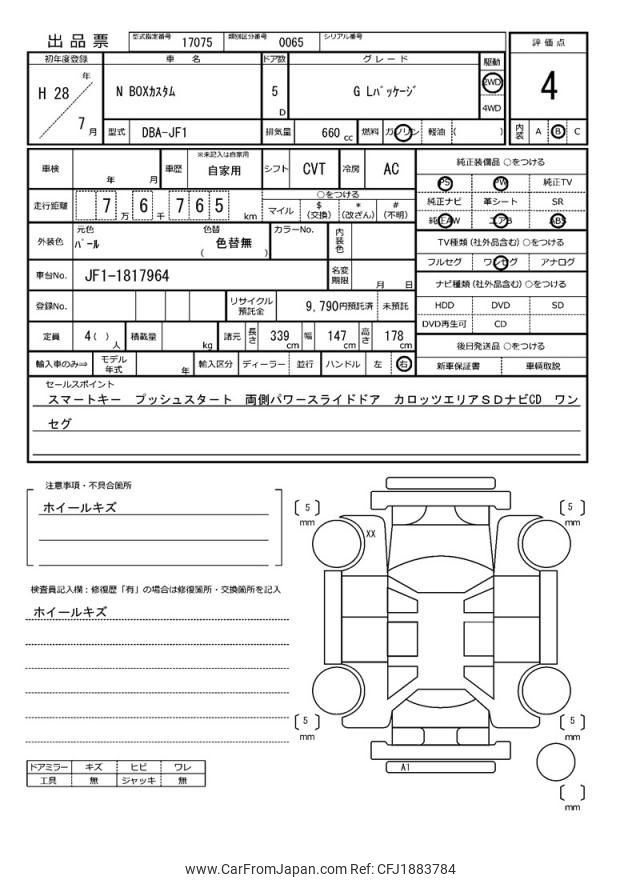 出品票
型式指定番号 17075 類別区分番号 0065 シリアル番号
評価点
4
初年度登録 車名 ドア数 グレード 駆動
H 28 年 7 月
N BOXカスタム
5 D
G Lパッケージ
2WD
4WD
型式 DBA-JF1 排気量 660 cc 燃料 ガソリン 軽油 ( )
内装 A B C
車検 年 月 車歴 ※未記入は自家用 自家用 シフト CVT 冷房 AC
走行距離 7 万 6 千 7 6 5 km
○をつける
マイル $(交換) *(改ざん) #(不明)
外装色 元色 パール 色替 ( 色替無 ) カラーNo. 内装色
車台No. JF1-1817964 名変期限 月 日
登録No. リサイクル預託金 9,790円預託済 未預託
定員 4( )人 積載量 kg 諸元 長さ 339 cm 幅 147 cm 高さ 178 cm
輸入車のみ⇒ モデル年式 年 輸入区分 ディーラー 並行 ハンドル 左 右
純正装備品 ○をつける
PS PW 純正TV
純正ナビ 革シート SR
純正AW エアB ABS
TV種類(社外品含む)○をつける
フルセグ ワンセグ アナログ
ナビ種類(社外品含む)○をつける
HDD DVD SD
DVD再生可 CD
後日発送品 ○をつける
新車保証書 車輌取説
セールスポイント
スマートキー プッシュスタート 両側パワースライドドア カロッツエリアSDナビCD ワン
セグ
注意事項・不具合箇所
ホイールキズ
検査員記入欄:修復歴「有」の場合は修復箇所・交換箇所を記入
ホイールキズ
ドアミラー キズ ヒビ ワレ
工具 無 ジャッキ 無
5 mm
5 mm
XX
5 mm
5 mm
A1
mm
www.CarFromJapan.com Ref: CFJ1883784